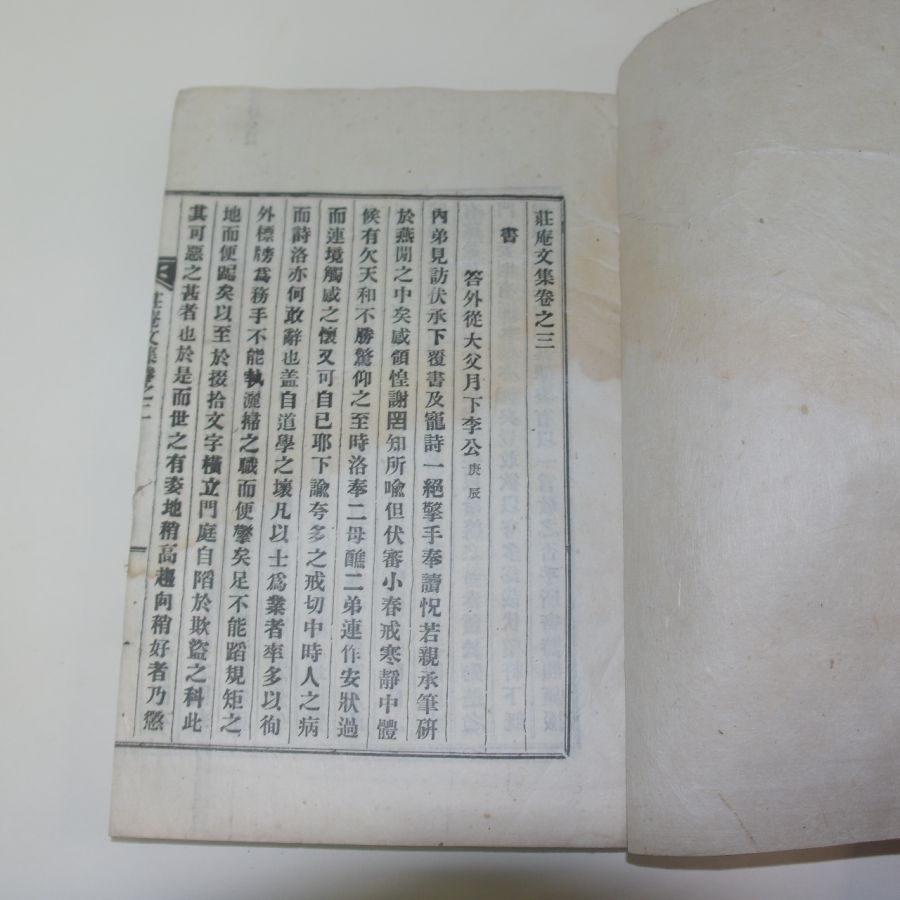 莊庵文集卷之三
書
答外從大父月下李公庚辰
內弟見訪伏承下覆書及寵詩一絕擎手奉讀怳若親承筆硏
於燕閒之中矣感領惶謝罔知所喩但伏審小春戒寒靜中體
候有欠天和不勝驚仰之至時洛奉二母醮二弟連作安狀過
而連境觸感之懷又可自已耶下諭夸多之戒切中時人之病
而詩洛亦何敢辭也盖自道學之壞凡以士爲業者率多以徇
外標牓爲務手不能執灑掃之職而便擎矣足不能蹈規矩之
地而便踢矣以至於掇拾文字橫立門庭自陷於欺盜之科此
其可惡之甚者也於是而世之有姿地稍高趨向稍好者乃懲
莊庵文集卷之三